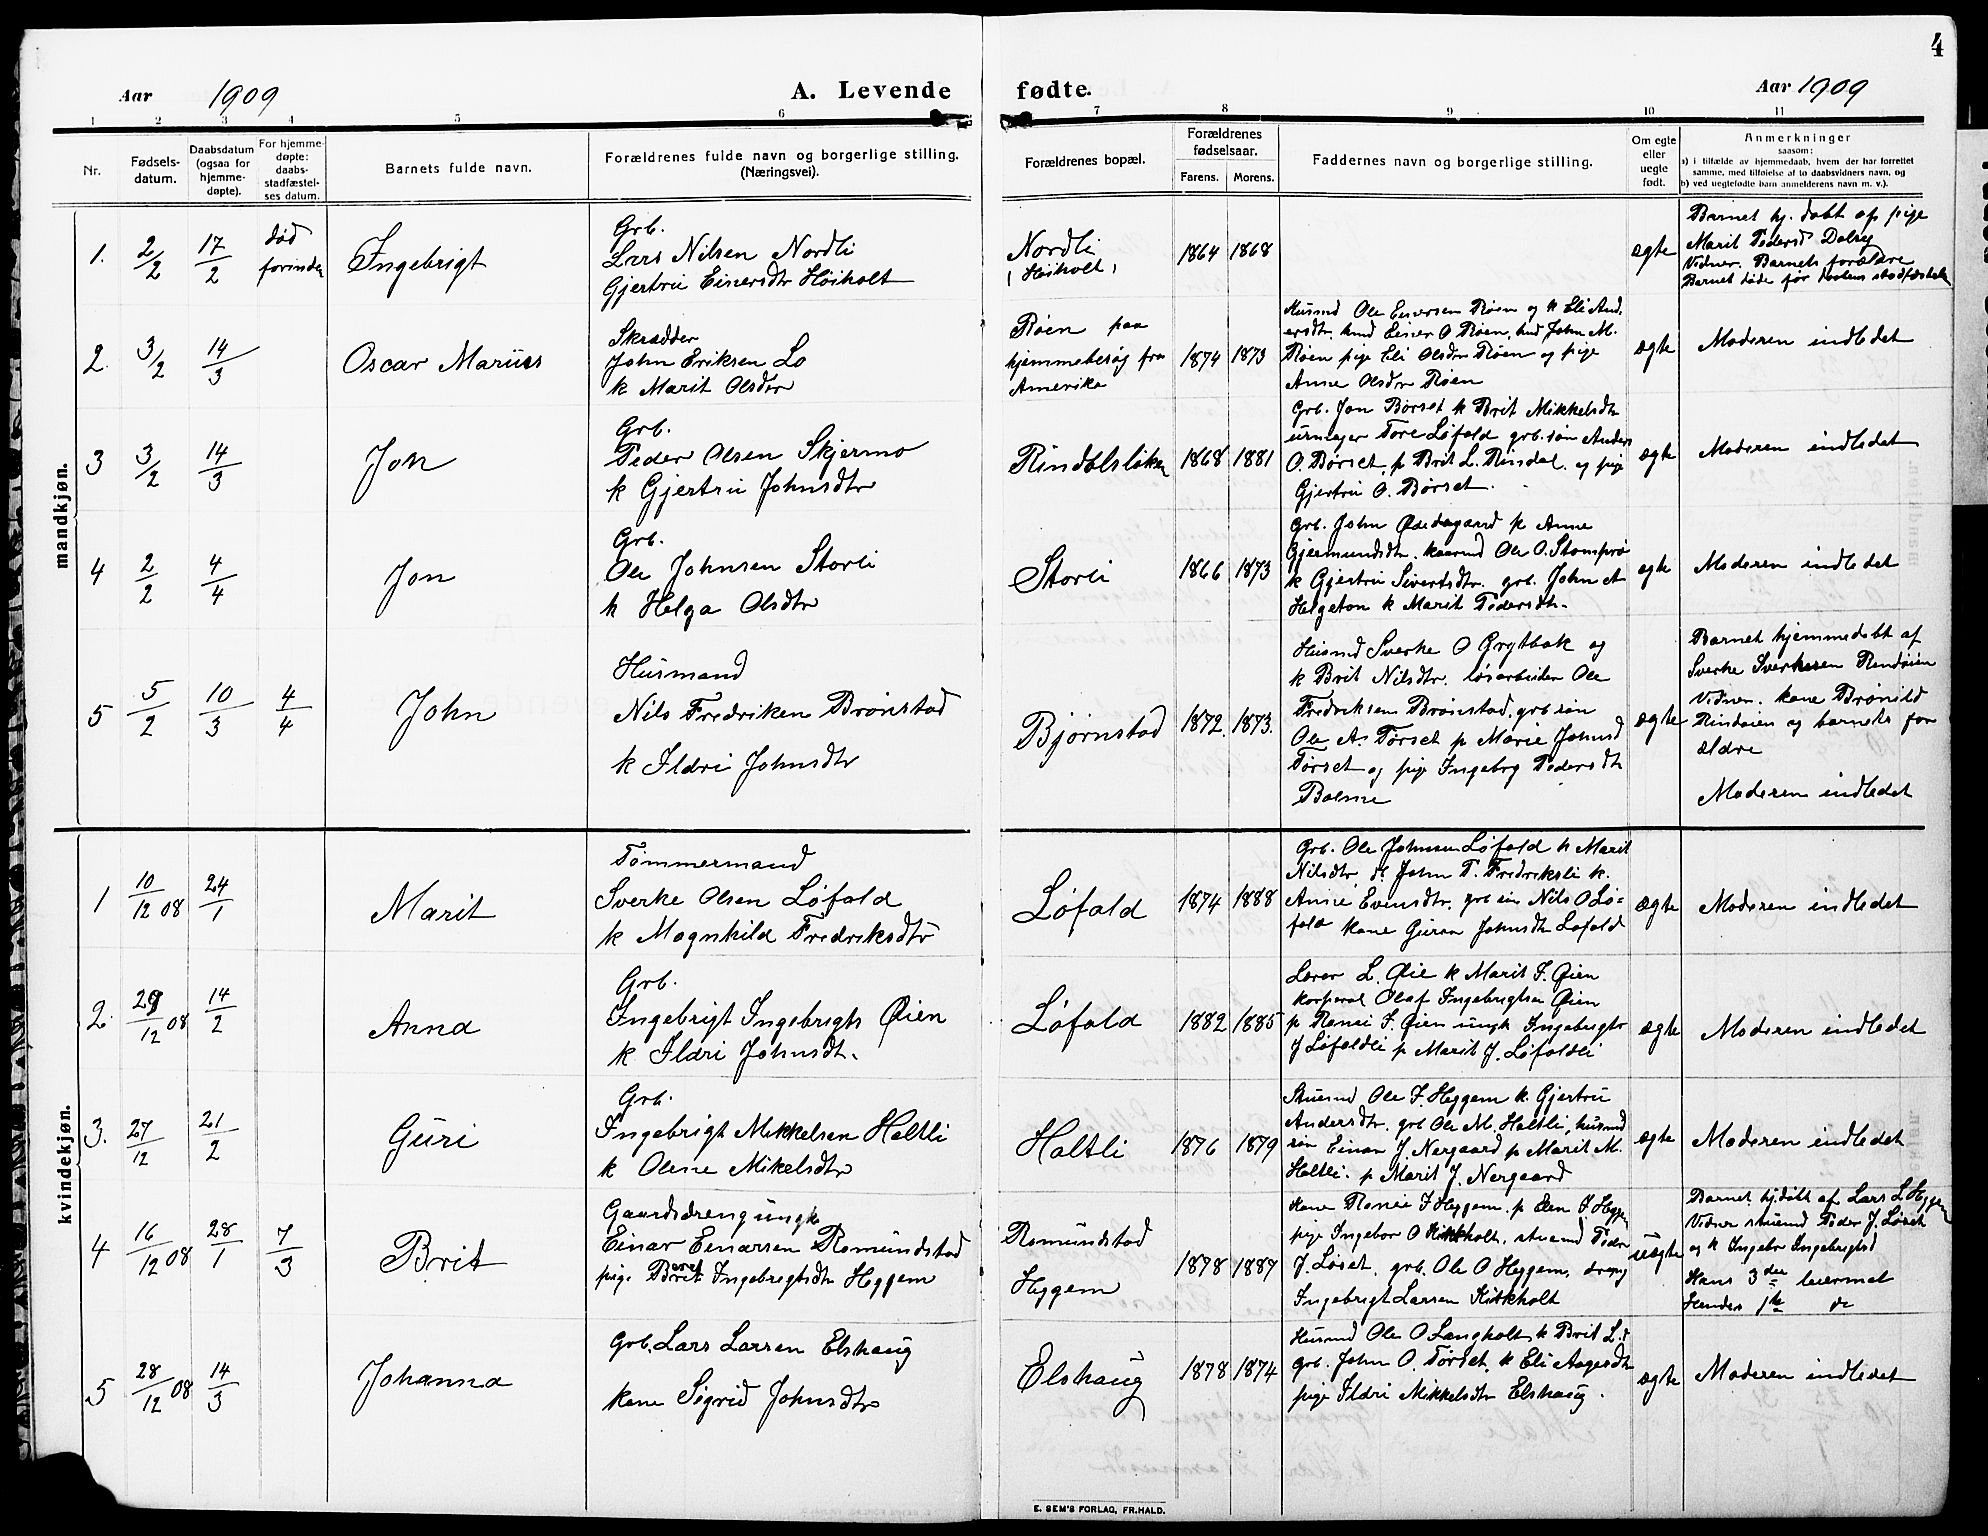 4
Aar 1909
A. Levende fødte.
Aar 1909
1 2 3 4 5 6 7 8 9 10 11
Nr.
Fødsels-
datum.
Daabsdatum
(ogsaa for
hjemme-
døpte).
For hjemme-
døpte:
daabs-
stadfæstel-
ses datum.
Barnets fulde navn.
Forældrenes fulde navn og borgerlige stilling.
(Næringsvei).
Forældrenes bopæl.
Forældrenes
fødselsaar.
Farens. Morens.
Faddernes navn og borgerlige stilling.
Om egte
eller
uegte
født.
Anmerkninger
saasom:
a) i tilfælde av hjemmedaab, hvem der har forrettet
samme, med tilføielse af to daabsvidners navn, og
b) ved uegtefødte barn anmelderens navn m. v.).
mandkjøn.
1. 2/2 17/2
død
forinden
Ingebrigt
Grb.
Lars Nilsen Nordli
Gjertru Einersdtr Høiholt
Nordli
(Høiholt)
1864 1868
ægte
Barnet hj. døbt af pige
Marit Pedersd Dalseg
Vidner. Barnets forældre
Barnet døde før daabens stadfæstelse
2. 3/2 14/3
Oscar Marius
Skrædder
John Eriksen Lo
k Marit Olsdtr
Røen paa
hjemmebesøg fra
Amerika
1874 1873
Husmd Ole Einersen Røen og k Eli And
ersdtr, Einer O Røen, John M.
Røen pige Eli Olsdtr Røen og pige
Anne Olsdtr Røen
ægte
Moderen indledet
3 3/2 14/3
Jon
Grb.
Peder Olsen Skjermo
k Gjertru Johnsdtr
Rindalsløkken
1868 1881
Grb. Jon Børset k Brit Mikkelsdtr
urmager Tore Løfald grb. søn Anders
O. Børset, p Brit L. Rindal, og pige
Gjertru O. Børset.
ægte
Moderen indledet
4 2/2 4/4
Jon
Grb.
Ole Johnsen Storli
k Helga Olsdtr
Storli
1866 1873
Grb. John Ødegaard k Anne
Gjermundsdtr. Ole O. Stomprø
k Gjertru Sivertsdtr. grb. John A
Helgeton k Marit Pedersdtr.
egte
Moderen indledet
5 5/2 10/3 4/4
John
Husmand
Nils Fredriksen Brønstad
k Ildri Johnsdtr
Bjørnstad
1872. 1873.
Husmd Sverke O Grytbak og
k Brit Nilsdtr. løsarbeider Ole
Fredriksen Brønstad, grb søn
Ole A. Tørset p Marie Johnsd
Tørset og pige Ingebrg Pedersdtr
Bolme
ægte
Barnet hjemmedøbt af
Sverke Sverkesen Rindøien
Vidner. kone Brønild
Rindøien og barnets for
ældre
Moderen indledet
kvindekjøn.
1 10/12 08 24/1
Marit
Tømmermand
Sverke Olsen Løfald
k Magnhild Fredriksdtr
Løfald
1874 1888
Grb. Ole Johnsen Løfald k Marit
Nilsdtr. do John P. Fredriksli k.
Anne Evensdtr, grb søn Nils O Lø-
fald kone Guron Johnsdtr Løfald
ægte
Moderen indledet
2. 29/12 08 14/2
Anna
Grb.
Ingebrigt Ingebrigts Øien
k Ildri Johnsdt.
Løfald
1882 1885
Lærer L. Øie k Marit I. Øien
korporal Olaf Ingebrigtsen Øien
p Ranei I. Øien ungk Ingebrigt
J Løfaldli p Marit J. Løfaldli
ægte
Moderen indledet
3. 27/12 21/2
Guri
Grb.
Ingebrigt Mikkelsen Haltli
k Olene Mikelsdtr
Haltli
1876 1879
Stuemd Ole I. Heggem k. Gjertru
Andersdtr. grb Ole M. Haltli, husmd
søn Einar J. Nergaard p Marit M.
Haltli. p Marit J. Nergaard
ægte
Moderen indledet
4 16/12 08 28/1 7/3
Brit
Gaardsdreng ungk
Einar Einarsen Romundstad
pige Beret Ingebrigtsdtr Heggem
Romundstad
Heggem
1878 1887
Kone Ranei I Heggem. p Elen I Heggem
pige Ingebor O Kirkholt, stuemd Peder
J. Løset. grb. Ole O Heggem, dreng
Ingebrigt Larsen Kirkholt
uægte
Barnet hj.døbt af Lars L Heggem
Vidner stuemd Peder J. Løset
og k Ingebor Ingebrigtsd
Hans 3die leiermal
Hendes 1te do
5 28/12 08 14/3
Johanna
Grb. Lars Larsen Elshaug
kone Sigrid Johnsdtr
Elshaug
1878 1874
Husmd Ole O Langholt k Brit L.d
grb. John O. Tørset, k Eli Aagesdtr
pige Ildri Mikkelsdtr Elshaug.
ægte
Moderen indledet
E. SEM'S FORLAG, FR.HALD.